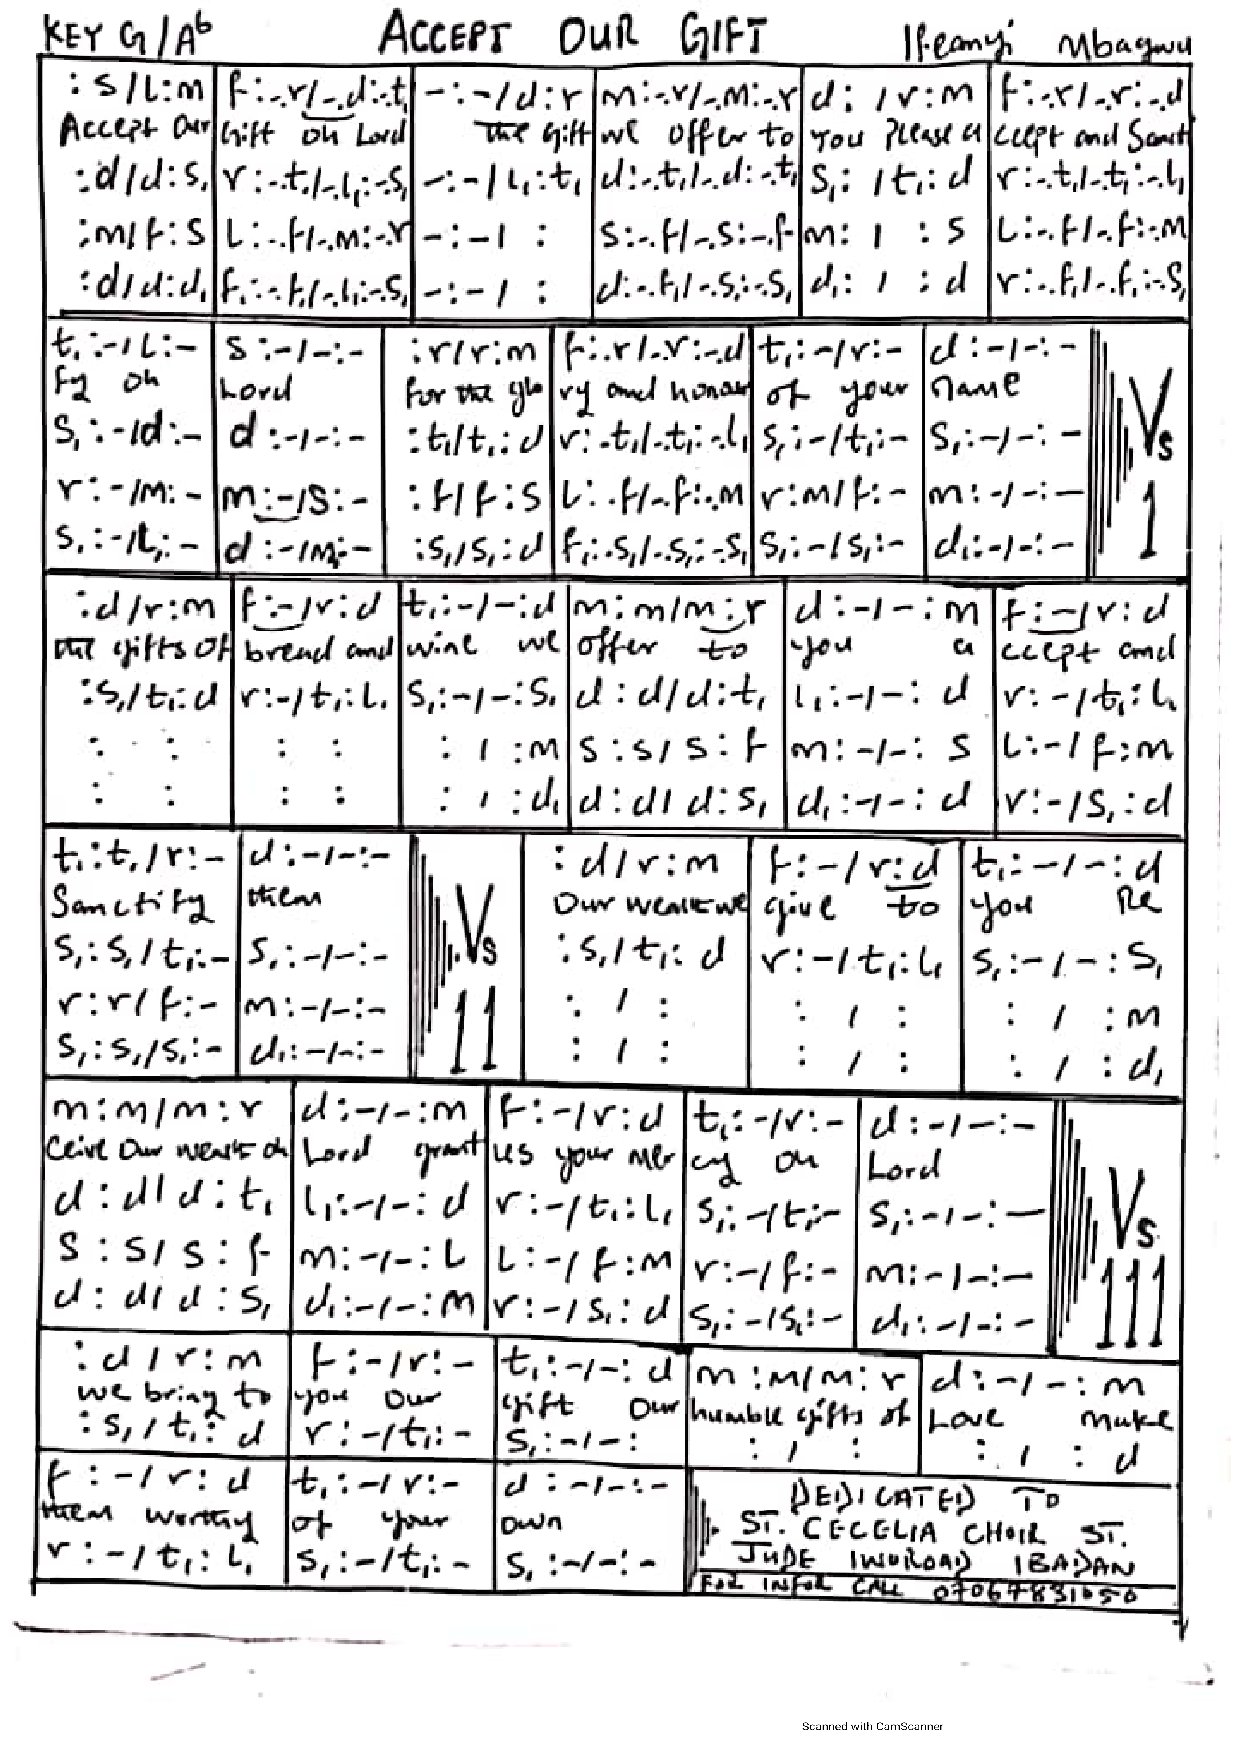 KEY G/Ab ACCEPT OUR GIFT Ifeanyi Mbagwu
: s / l : m | f : -.r / -.d : -.t, | - : - / d : r | m : -.r / -.m : -.r | d : / r : m | f : -.r / -.r : -.d
Accept Our | Gift oh Lord | the gift | we offer to | you Please a | ccept and Sanct
: d / d : s, | r : -.t, / -.l, : -.s, | - : - / l, : t, | d : -.t, / -.d : -.t, | s, : / t, : d | r : -.t, / -.t, : -.l,
: m / f : s | l : -.f / -.m : -.r | - : - / : | s : -.f / -.s : -.f | m : / : s | l : -.f / -.f : -.m
: d / d : d, | f, : -.f, / -.l, : -.s, | - : - / : | d : -.f, / -.s, : -.s, | d, : / : d | r : -.f, / -.f, : -.s,
t, : - / l : - | s : - / - : - | : r / r : m | f : .r / -.r : -.d | t, : - / r : - | d : - / - : - | Vs 1
fy oh | Lord | for the glo | ry and honour | of your | name
s, : - / d : - | d : - / - : - | : t, / t, : d | r : -.t, / -.t, : -.l, | s, : - / t, : - | s, : - / - : -
r : - / m : - | m : - / s : - | : f / f : s | l : .f / -.f : .m | r : m / f : - | m : - / - : -
s, : - / l, : - | d : - / m, : - | : s, / s, : d | f, : .s, / -.s, : -.s, | s, : - / s, : - | d, : - / - : -
: d / r : m | f : - / r : d | t, : - / - : d | m : m / m : r | d : - / - : m | f : - / r : d
the gifts of | bread and | wine we | offer to | you a | ccept and
: s, / t, : d | r : - / t, : l, | s, : - / - : s, | d : d / d : t, | l, : - / - : d | r : - / t, : l,
: : | : : | : / : m | s : s / s : f | m : - / - : s | l : - / f : m
: : | : : | : / : d, | d : d / d : s, | d, : - / - : d | r : - / s, : d
t, : t, / r : - | d : - / - : - | Vs 11 | : d / r : m | f : - / r : d | t, : - / - : d
Sanctify | them | Our wealt we | give to | you Re
s, : s, / t, : - | s, : - / - : - | : s, / t, : d | r : - / t, : l, | s, : - / - : s,
r : r / f : - | m : - / - : - | : / : | : / : | : / : m
s, : s, / s, : - | d, : - / - : - | : / : | : / : | : / : d,
m : m / m : r | d : - / - : m | f : - / r : d | t, : - / r : - | d : - / - : - | Vs 111
Ceive Our wealt oh | Lord grant | us your mer | cy oh | Lord
d : d / d : t, | l, : - / - : d | r : - / t, : l, | s, : - / t, : - | s, : - / - : -
s : s / s : f | m : - / - : l | l : - / f : m | r : - / f : - | m : - / - : -
d : d / d : s, | d, : - / - : m | r : - / s, : d | s, : - / s, : - | d, : - / - : -
: d / r : m | f : - / r : - | t, : - / - : d | m : m / m : r | d : - / - : m
we bring to | you Our | gift Our | humble gifts of | Love make
: s, / t, : d | r : - / t, : - | s, : - / - : | : / : | : / : d
f : - / r : d | t, : - / r : - | d : - / - : -
them worthy | of your | own
r : - / t, : l, | s, : - / t, : - | s, : - / - : -
DEDICATED TO
ST. CECELIA CHOIR ST.
JUDE IWOROAD IBADAN
FOR INFOR CALL 07067831050
Scanned with CamScanner